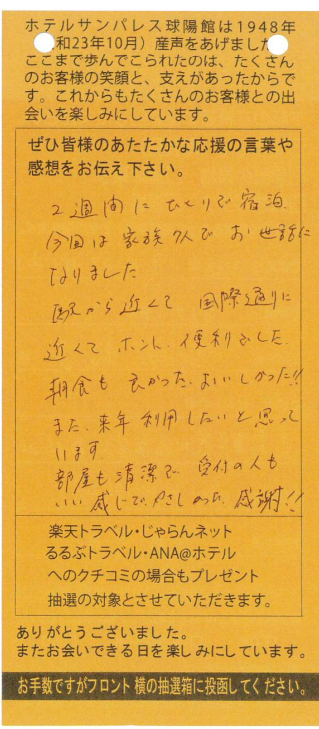 ホテルサンパレス球陽館は1948年
和23年10月）産声をあげました
ここまで歩んでこられたのは、たくさん
のお客様の笑顔と、支えがあったからで
す。これからもたくさんのお客様との出
会いを楽しみにしています。
ぜひ皆様のあたたかな応援の言葉や
感想をお伝え下さい。
2週間にひとりで宿泊、
今回は家族7人でお世話に
なりました
駅から近くて 国際通りに
近くて ホント、便利でした、
朝食も良かった、おいしかった!!
また、来年利用したいと思って
います
部屋も清潔で 受付の人も
いい感じで、やさしかった、感謝!!
楽天トラベル・じゃらんネット
るるぶトラベル・ANA@ホテル
へのクチコミの場合もプレゼント
抽選の対象とさせていただきます。
ありがとうございました。
またお会いできる日を楽しみにしています。
お手数ですがフロント横の抽選箱に投函してください。